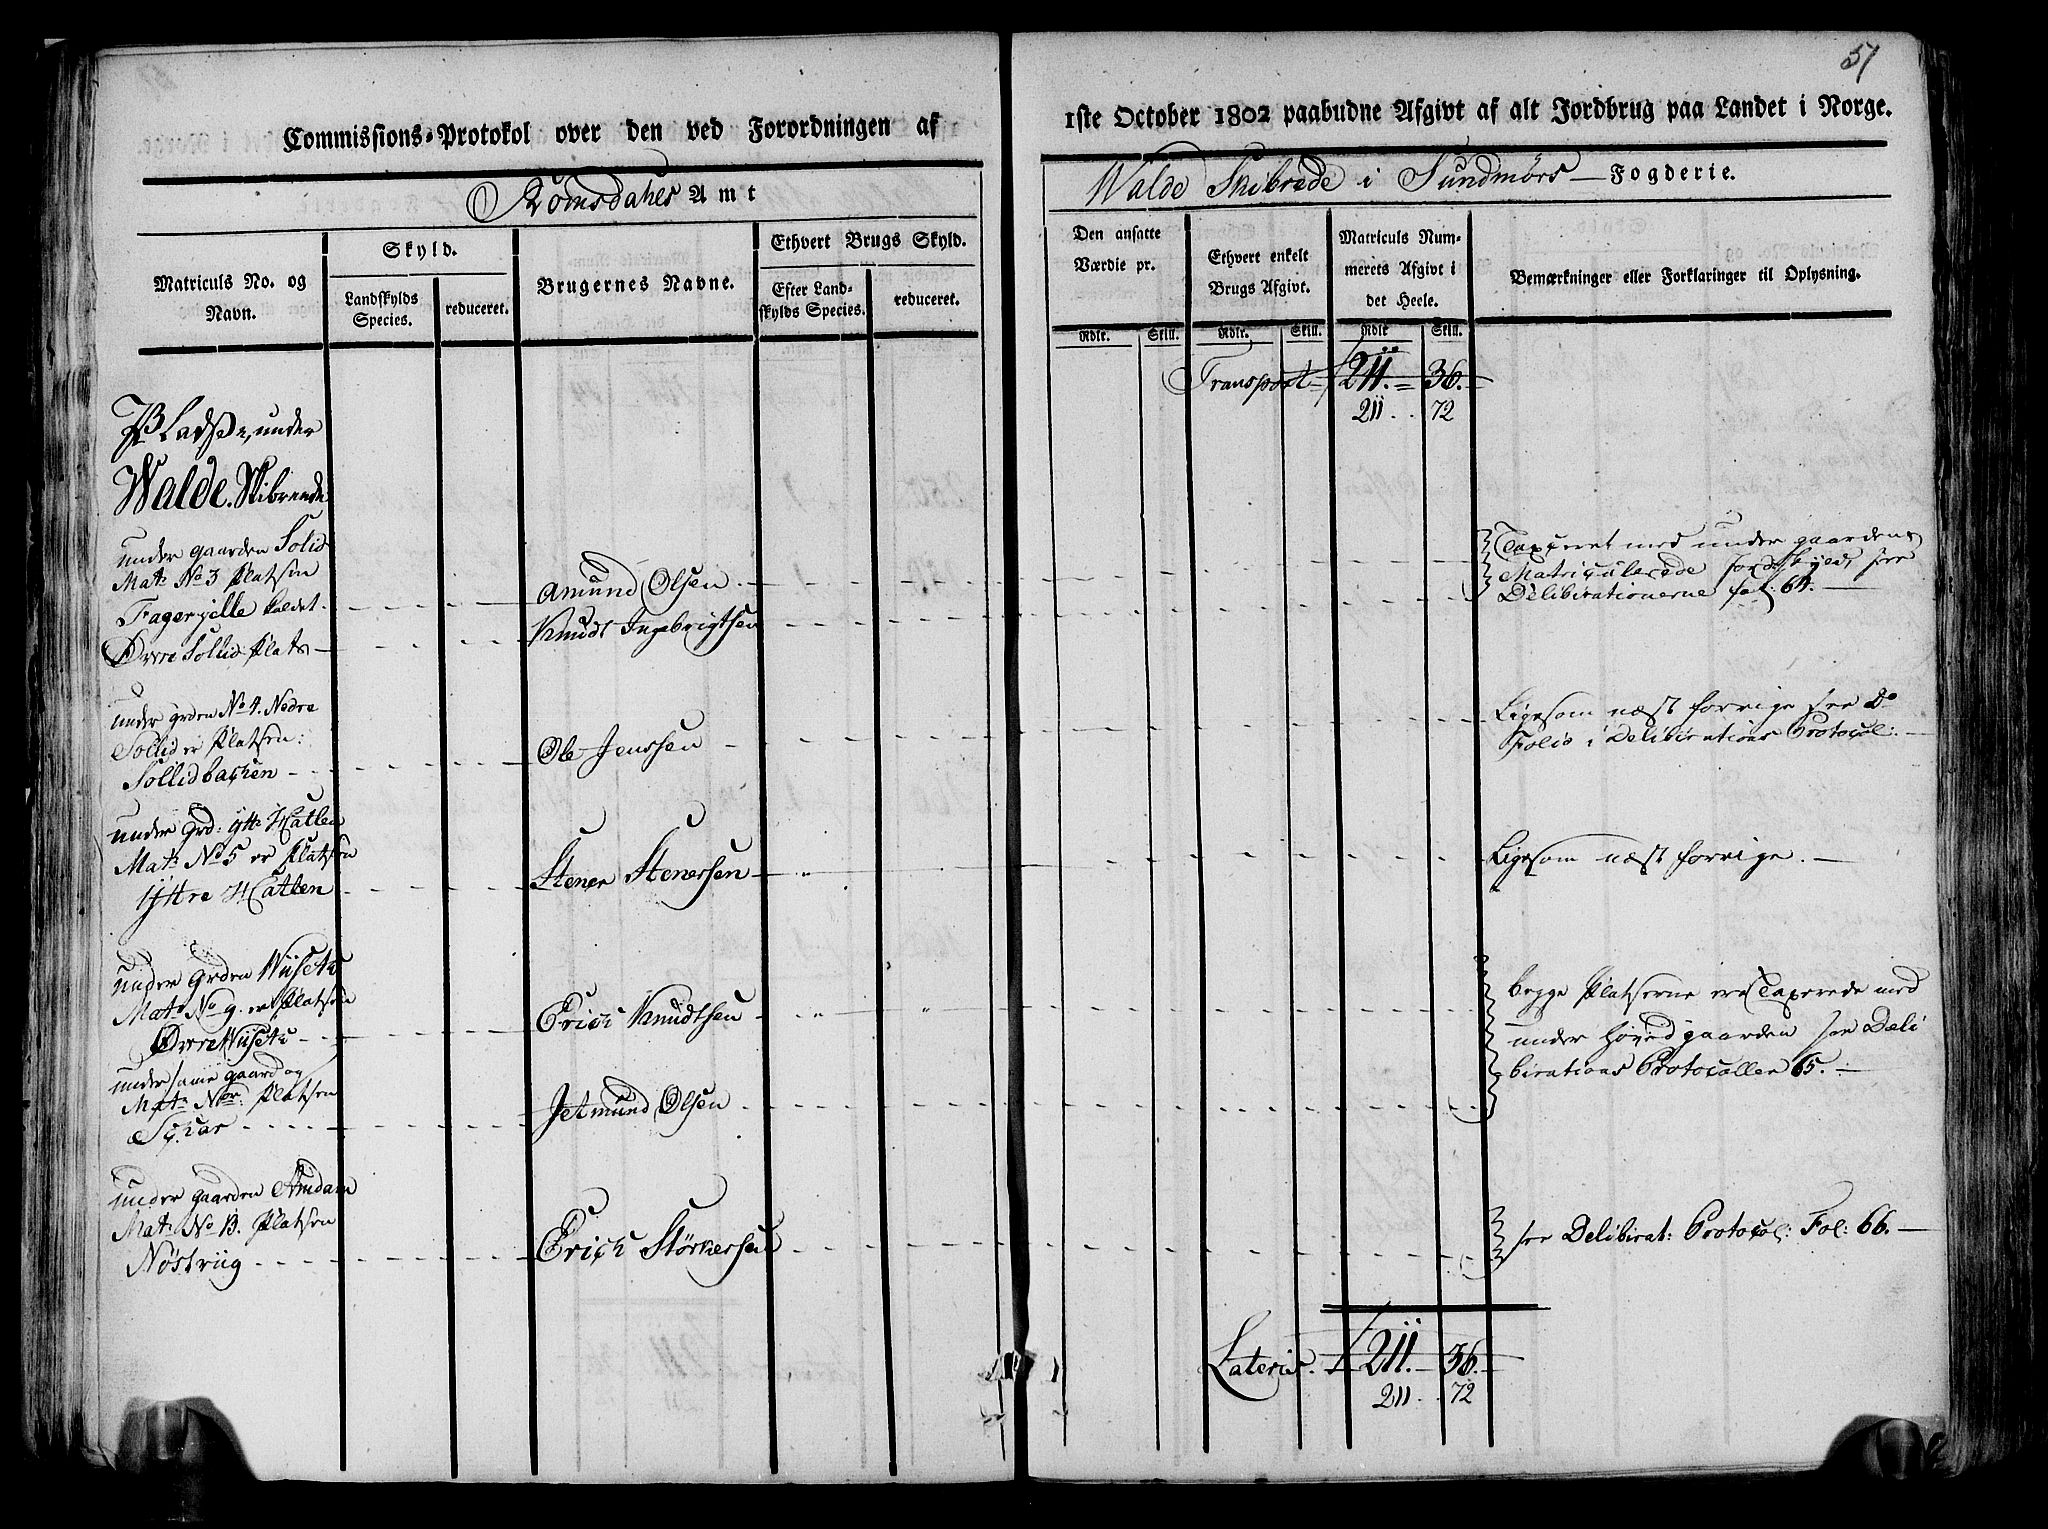 51
Commissions-Protokol over den ved Forordningen af
1ste October 1802 paabudne Afgivt af alt Jordbrug paa Landet i Norge.
Romsdahls Amt
Walde Skibrede i Sundmørs Fogderie.
Matriculs No. og Navn.
Skyld.
Landskylds Species.
reduceret.
Brugernes Navne.
Ethvert Brugs Skyld.
Efter Landskylds Species.
reduceret.
Den ansatte Værdie pr.
Rdlr. Skill.
Ethvert enkelt Brugs Afgivt.
Rdlr. Skill.
Matriculs Nummerets Afgivt i det Heele.
Rdlr Skill.
Bemærkninger eller Forklaringer til Oplysning.
Transport 211. 36.
211. 72
Pladse, under
Walde Skibrende
under gaarden Solid
Mat: No 3 Platsen
Fagerjelle kaldet. Amund Olsen
Taxeret med under gaardens
Matriculerede
Deliberationerne fol: 64.
Øvre Sollid Plats Knudt Ingebrigtsen
under grden No 4. Nedre
Sollid er Platsen:
Sollidbachen Ole Jenssen
Ligesom næst forrige see Do
Folio i Deliberations Protocol:
under Grd: ytt: Hatlen
Mat: No 5 er Platsen
Yttre Hatlen Stener Stenersen
Ligesom næst forrige.
under Grden Wiiseth
Mat: No 9. er Platsen
Øvre Wiiseth Erich Knudtsen
begge Platserne ere Taxerede med
under Hovedgaarden see Deli
berations Protocollen 65.
under samme gaard og
Mat: Nor: Platsen
Jetmund Olsen
under gaarden Amdam
Mat: No 13. Platsen
Nøstriig Erich Størkersen
see Deliberat: Protocol: Fol: 66.
Lateris 211. 36.
211. 72